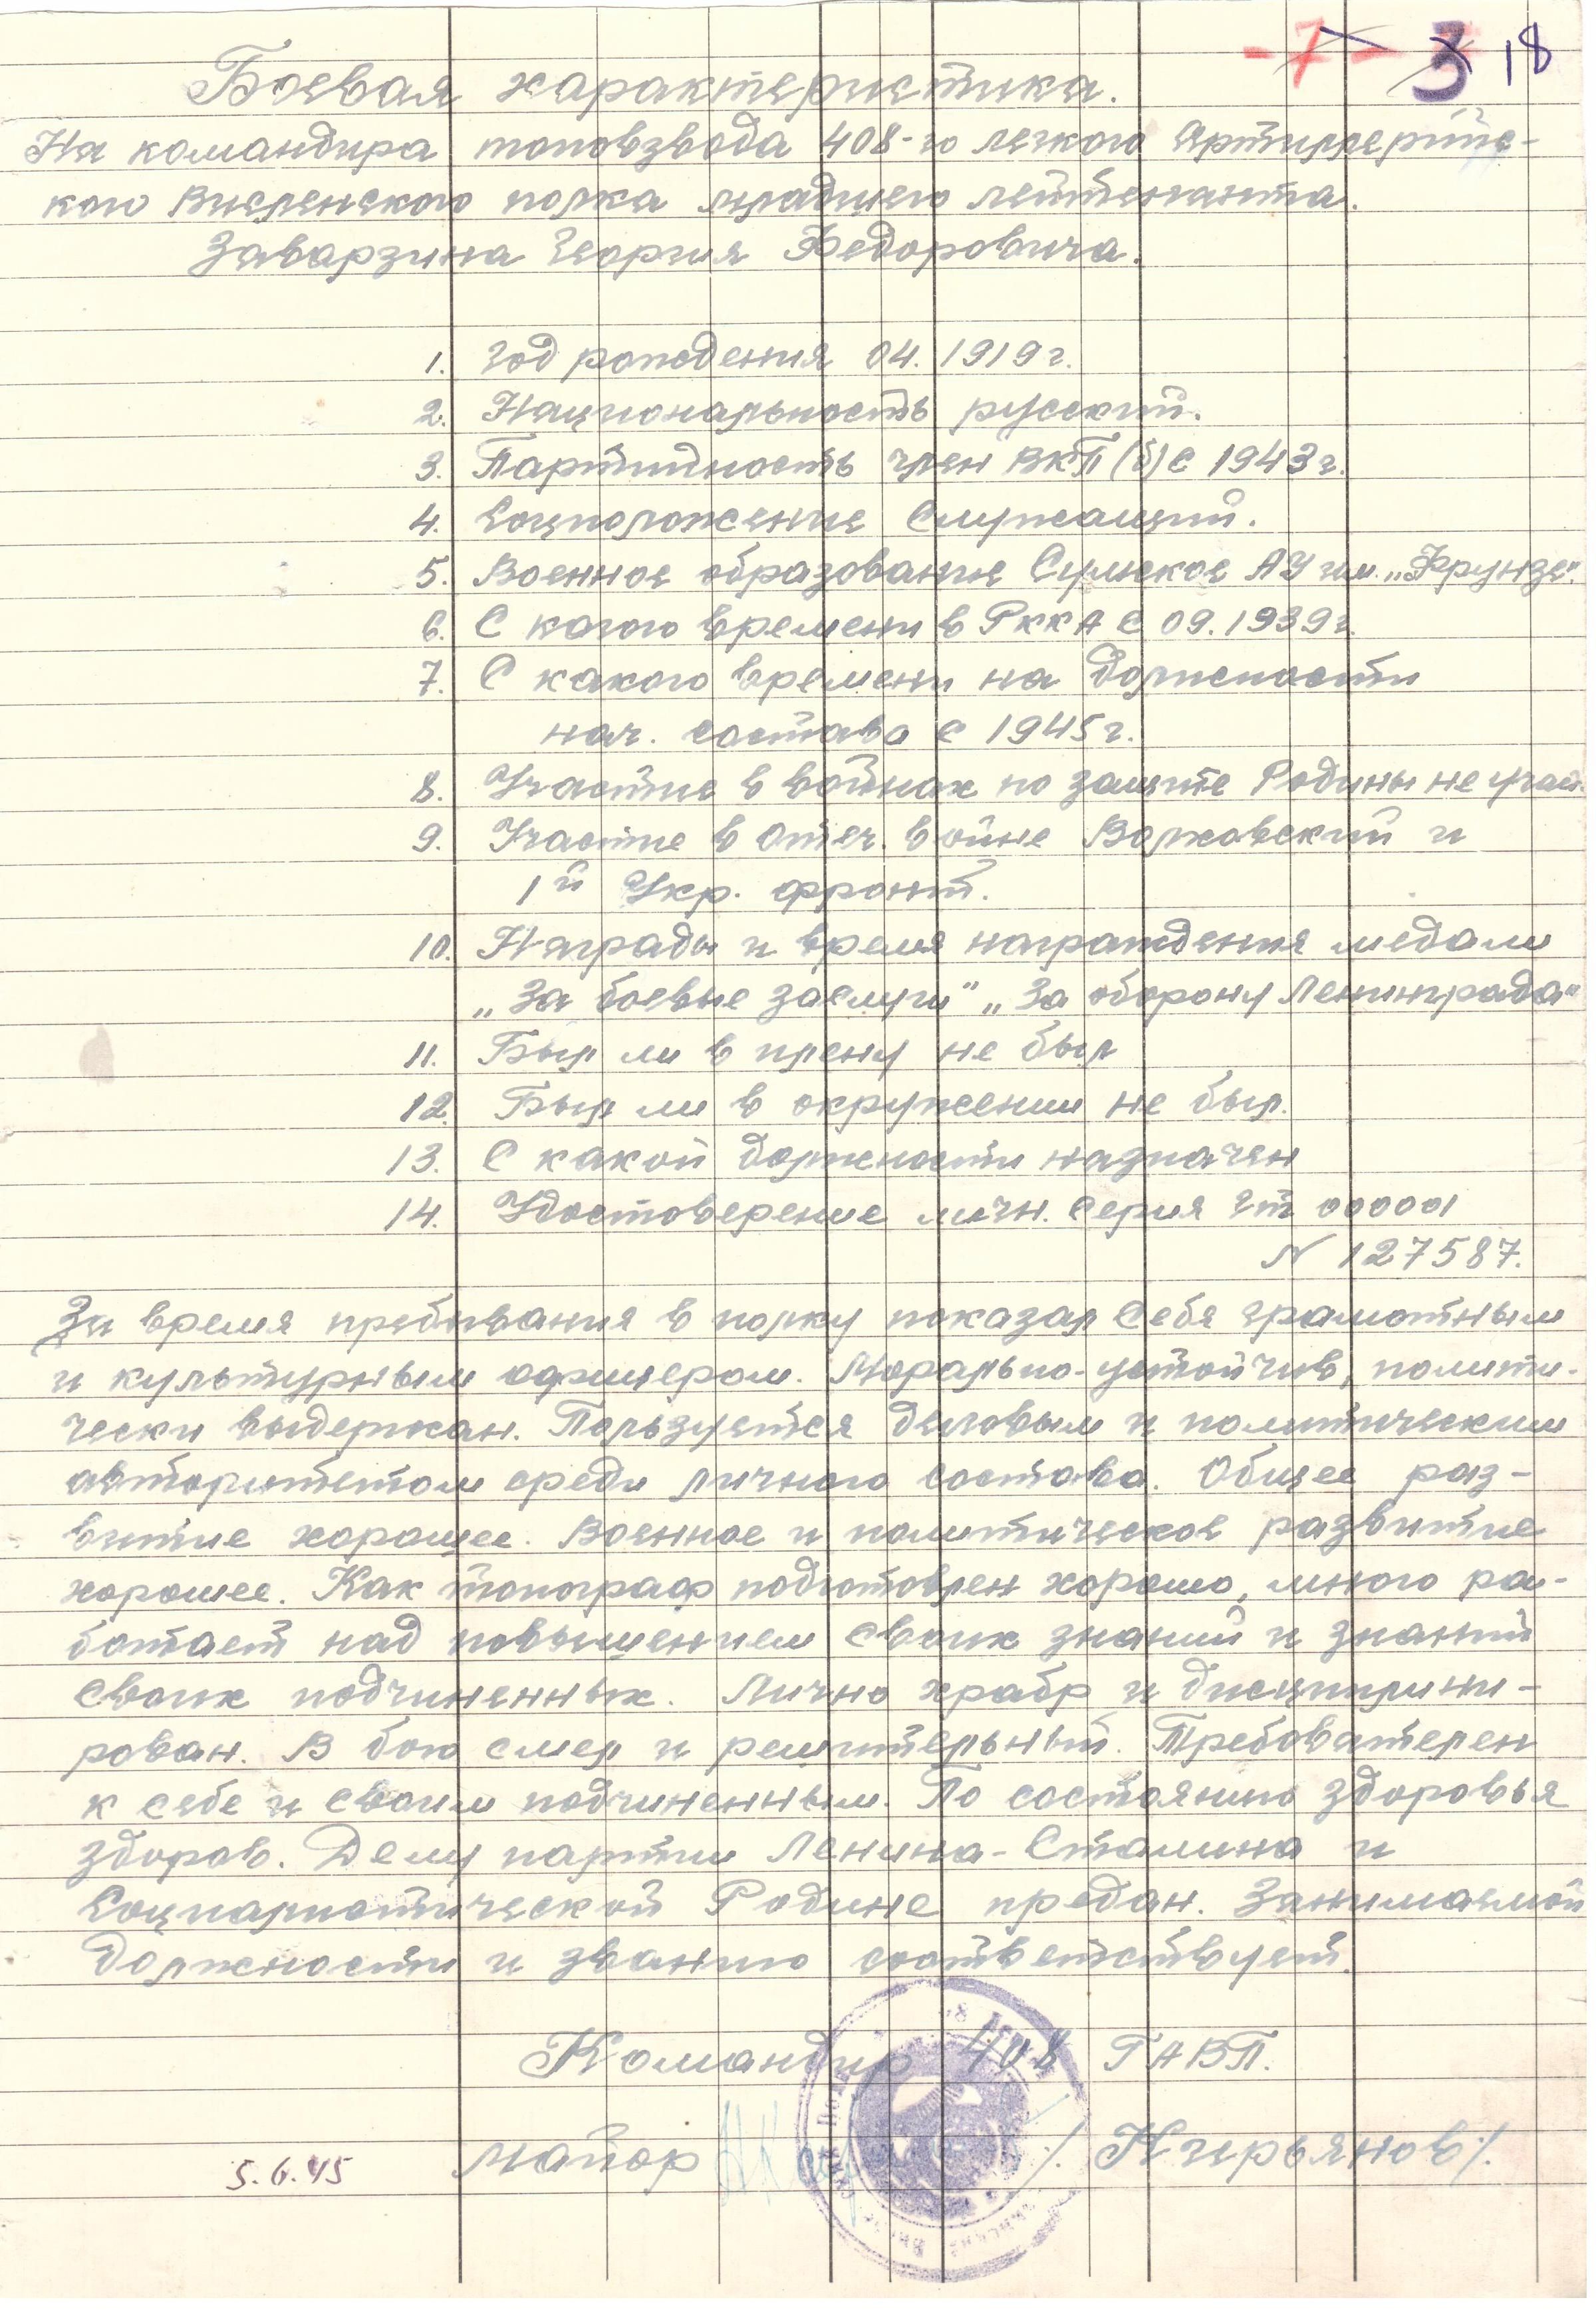 -7- 3 18
Боевая характеристика.
На командира топовзвода 408-го легкого Артиллерийс-
кого Висленского полка младшего лейтенанта.
Заварзина Георгия Федоровича.
1. Год рождения 04. 1919 г.
2. Национальность русский.
3. Партийность член ВКП(б) с 1943 г.
4. Соцположение Служащий.
5. Военное образование Сумское АУ им. „Фрунзе".
6. С какого времени в РККА с 09. 1939 г.
7. С какого времени на должности
нач. состава с 1945 г.
8. Участие в войнах по защите Родины не участ.
9. Участие в Отеч. войне Волховский и
1й Укр. фронт.
10. Награды и время награждения медали
„За боевые заслуги" „За оборону Ленинграда"
11. Был ли в плену не был
12. Был ли в окружении не был.
13. С какой должности назначен
14. Удостоверение личн. Серия ГТ 00001
N 127587.
За время пребывания в полку показал себя грамотным
и культурным офицером. Морально-устойчив, полити-
чески выдержан. Пользуется деловым и политическим
авторитетом среди личного состава. Общее раз-
витие хорошее. Военное и политическое развитие
хорошее. Как топограф подготовлен хорошо, много ра-
ботает над повышением своих знаний и знаний
своих подчиненных. Лично храбр и дисциплини-
рован. В бою смел и решительный. Требователен
к себе и своим подчиненным. По состоянию здоровья
здоров. Делу партии Ленина-Сталина и
Социалистической Родине предан. Занимаемой
должности и званию соответствует.
Командир 408 ЛАВП.
5.6.45 майор /. Кирьянов/.